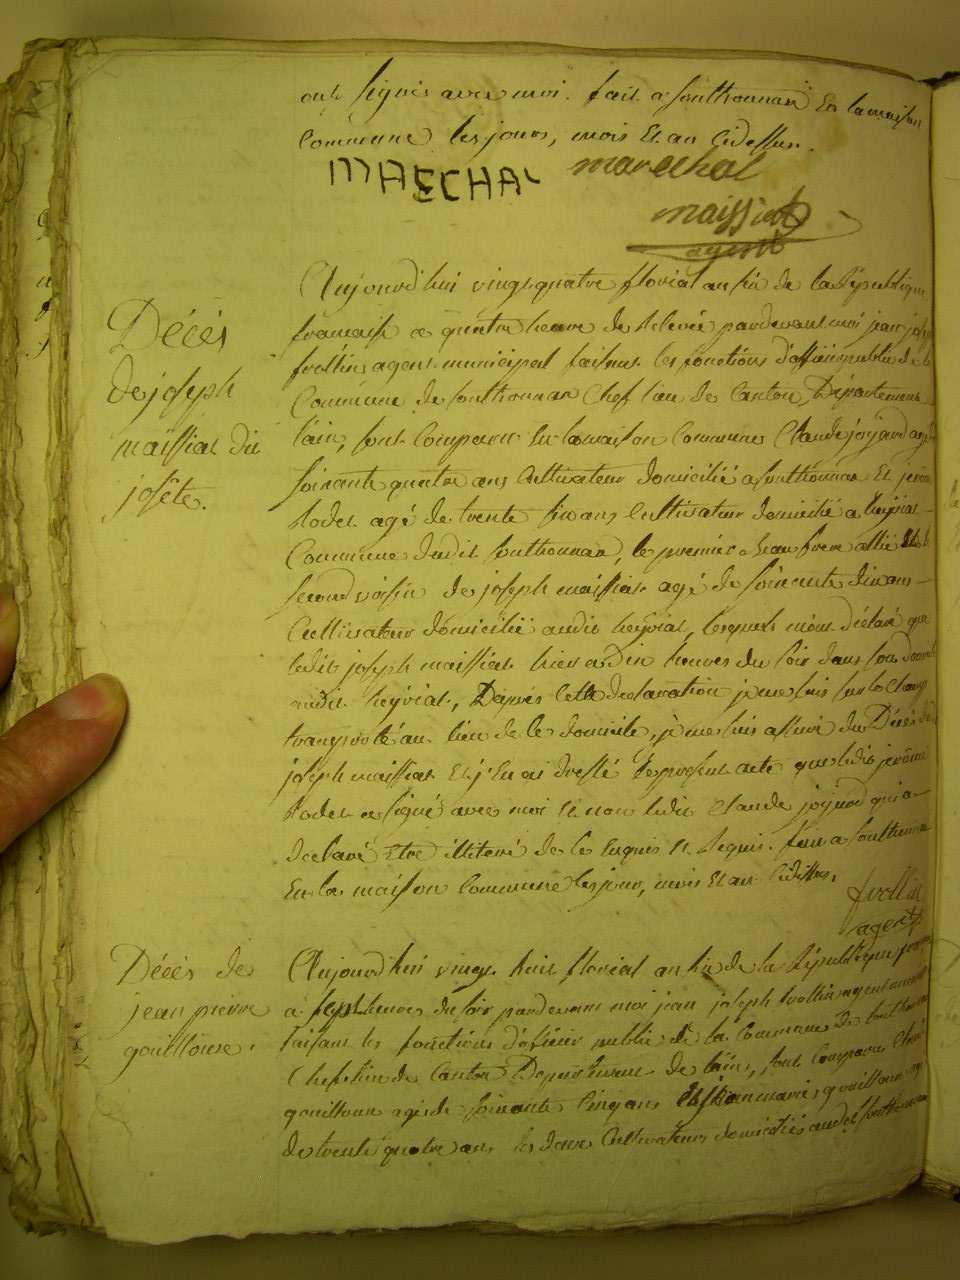 ont signés avec moi. fait a southonnax En la maison
Commune les jours, mois Et an Cidessus.
MAECHAL marechal
maissiat
agent
Décès
de joseph
maissiat du
josête.
Aujourd'hui vingt quatre floreal an six de la République
francaise a quatre heure de Relevée pardevant moi jean jos
frollin agent municipal faisant les fonctions d'officier public de la
Commune de southonnax Chef lieu de Canton, Département
l'ain, sont Comparu En la maison Commune Claude joyard agé
soixante quatre ans Cultivateur domicilié a southonnax Et jerôme
Rodet agé de trente six ans Cultivateur domicilié a heyriat
Commune dudit southonnax, le premier Beau frere allié Et le
second voisin de joseph maissiat agé de soixante dix ans
Cultivateur domicilié audit heyriat, lesquels m'ont déclaré que
ledit joseph maissiat hier a dix heures du soir dans son domicil
audit heyriat, Dapres Cette declaration je me suis sur le Champ
transporté au lieu de Ce domicile, je me suis assuré du Décès dud
joseph maissiat Et j'En ai dressé le present acte que ledit jerôme
Rodet a signé avec moi Et non ledit Claude joyard qui a
declaré Etre illiteré de Ce Enquis Et Requis. fait a southonnax
En la maison Commune les jour, mois Et an Cidessus.
frollin
agent
Décès de
jean pierre
gouilloux.
Aujourd'hui vingt huit floreal an six de la République française
a sept heures du soir pardevant moi jean joseph frollin agent municipal
faisant les fonctions d'oficier public de la Commune De southonnax
Chef lieu de Canton Departement de l'ain, sont Comparus
gouilloux agé de soixante Cinq ans Et marie gouilloux agé
de trente quatre ans les deux Cultivateurs domiciliés audit southonnax